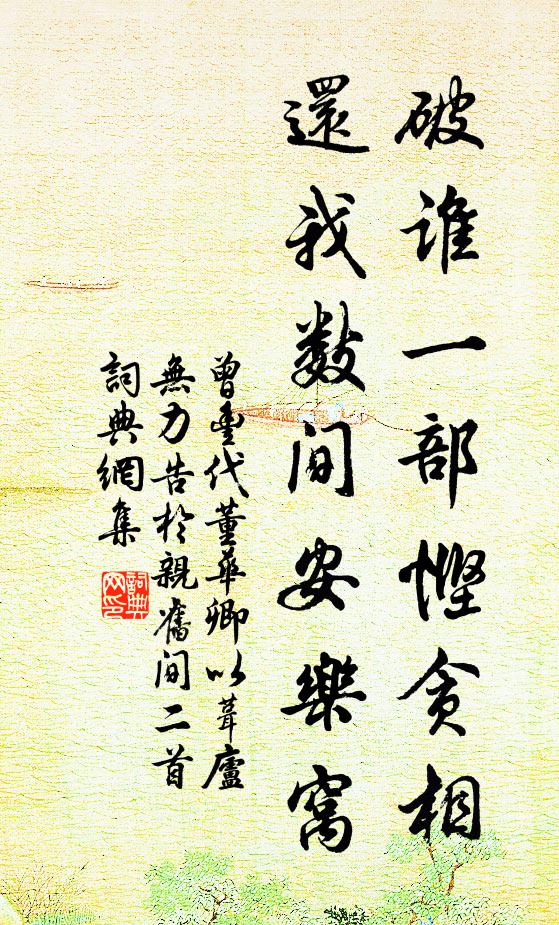 破谁一部悭贪相
還我数间安樂窩
曾豊代董華卿以葺廬
無力告於親舊间二首
詞典網集
詞典网印